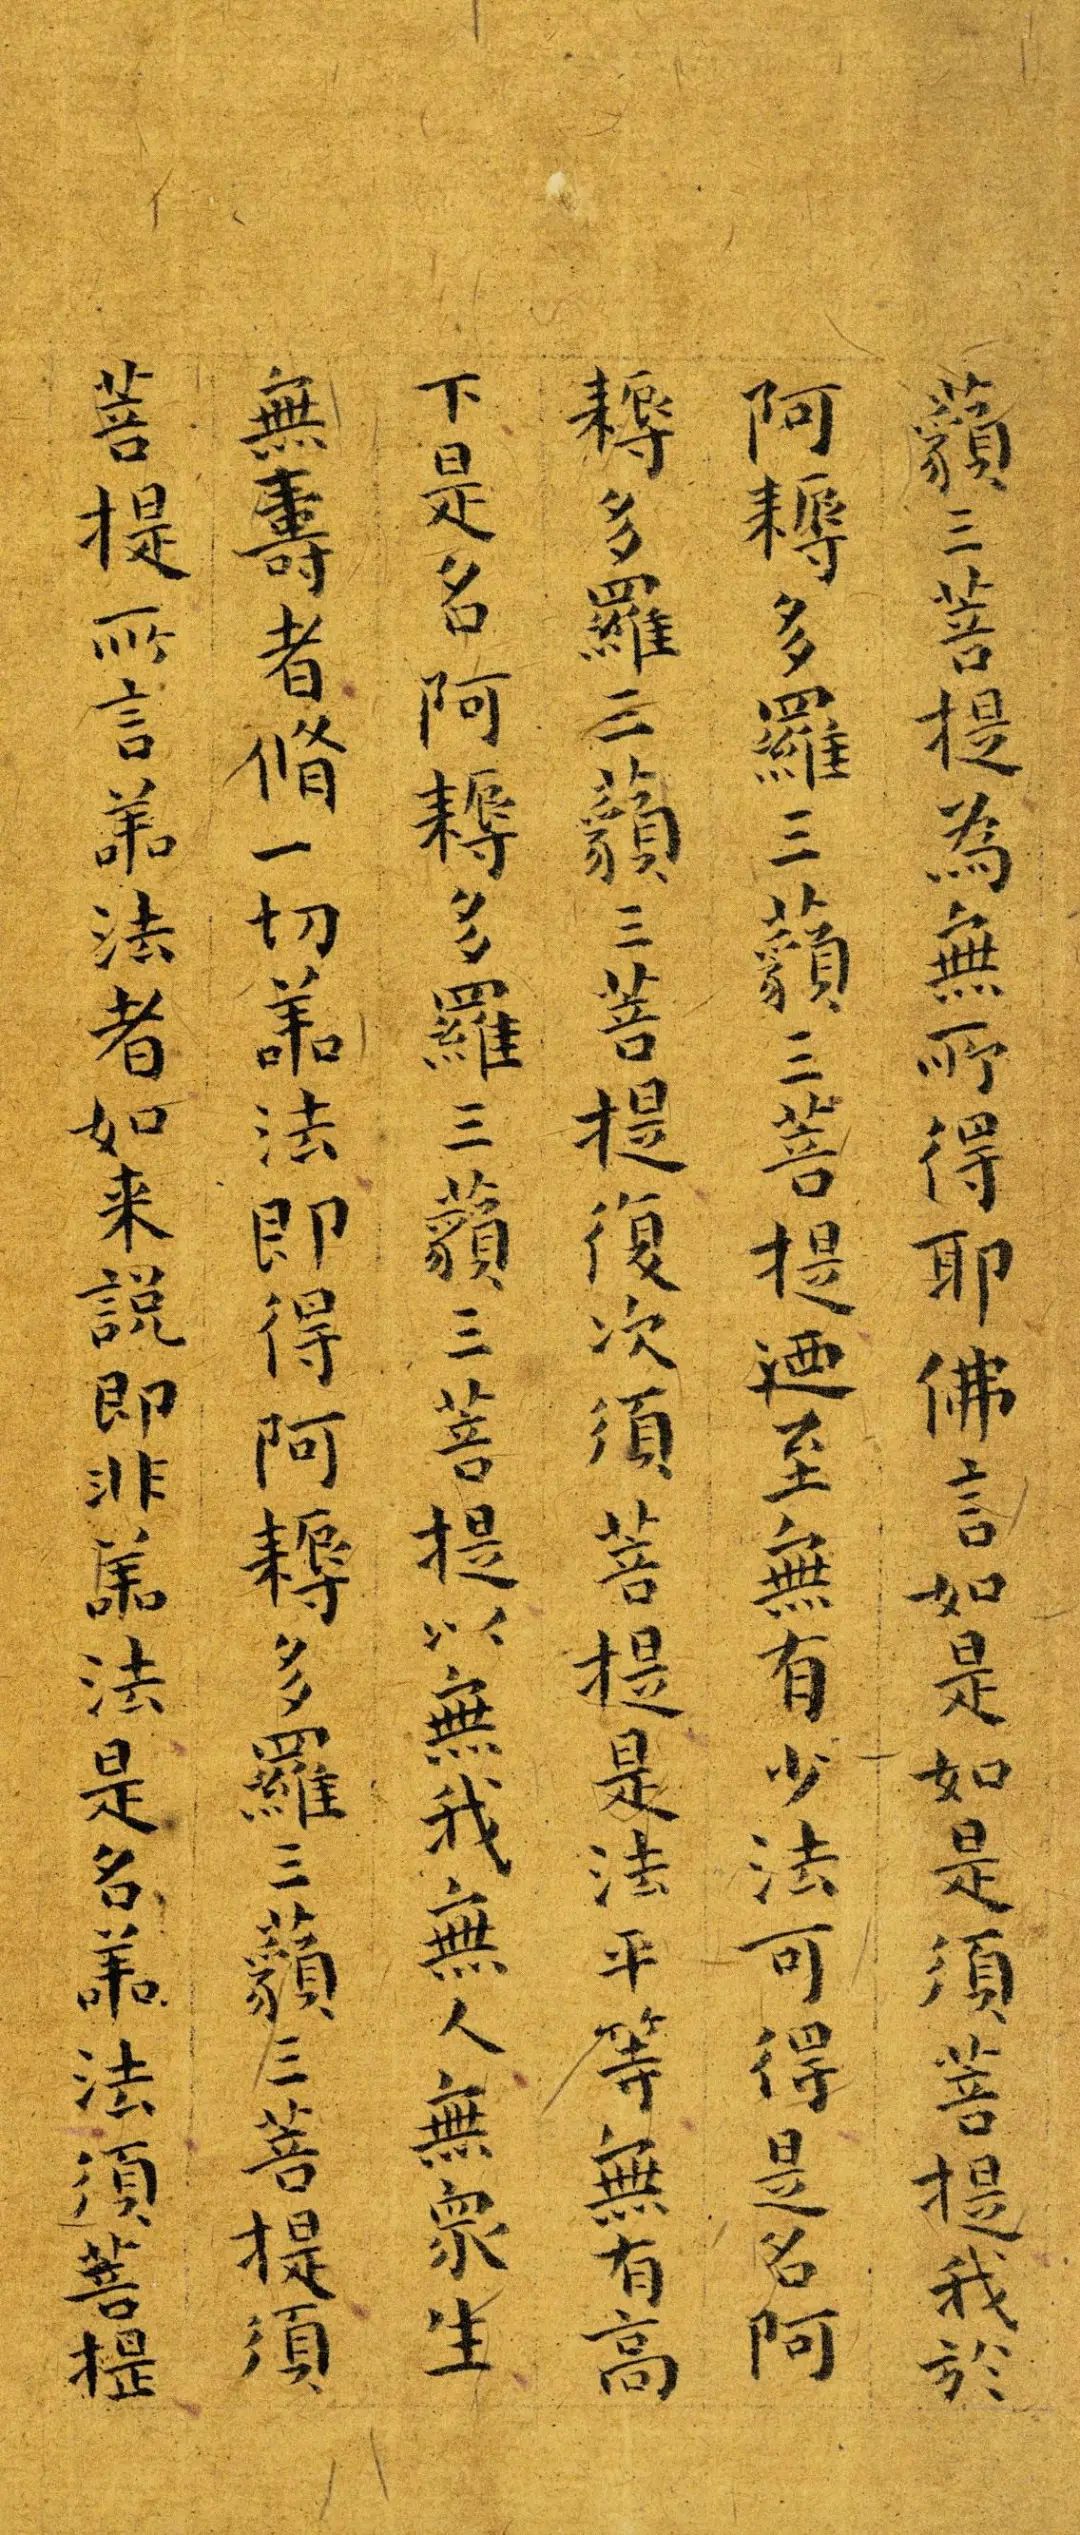 藐三菩提為無所得耶佛言如是如是須菩提我於
阿耨多羅三藐三菩提迺至無有少法可得是名阿
耨多羅三藐三菩提復次須菩提是法平等無有高
下是名阿耨多羅三藐三菩提以無我無人無眾生
無壽者脩一切善法即得阿耨多羅三藐三菩提須
菩提所言善法者如来說即非善法是名善法須菩提